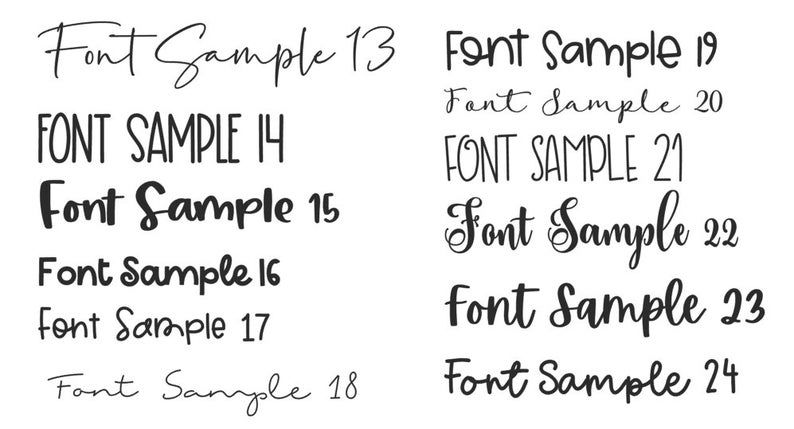 Font Sample 13
FONT SAMPLE 14
Font Sample 15
Font Sample 16
Font Sample 17
Font Sample 18
Font Sample 19
Font Sample 20
FONT SAMPLE 21
Font Sample 22
Font Sample 23
Font Sample 24